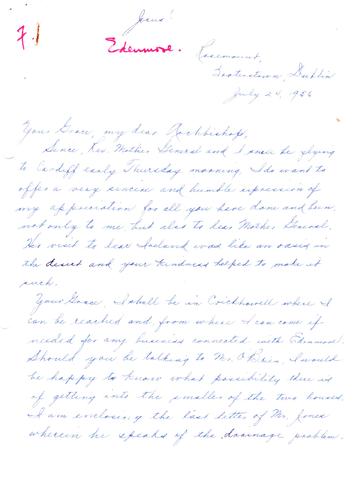 Jesus!
F.1
Edenmore.
Rosemount,
Booterstown, Dublin
July 24, 1956
Your Grace, my dear Archbishop,
Since, Rev. Mother General and I shall be flying
to Cardiff early Thursday morning, I do want to
offer a very sincere and humble expression of
my appreciation for all you have done and been
not only to me but also to dear Mother General.
Her visit to dear Ireland was like an oasis in
the desert and your kindness helped to make it
such.
Your Grace, I shall be in Crickhowell where I
can be reached and from where I can come if
needed for any business connected with Edenmore.
Should you be talking to Mr. O'Brien, I would
be happy to know what possibility there is
of getting into the smaller of the two houses.
I am enclosing the last letter of Mr. Jones
wherein he speaks of the drainage problem.